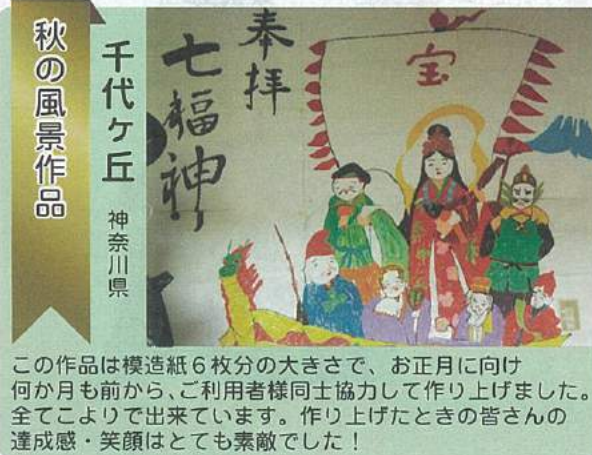 秋の風景作品
千代ヶ丘 神奈川県
奉拝
七福神
宝
この作品は模造紙６枚分の大きさで、お正月に向け
何か月も前から、ご利用者様同士協力して作り上げました。
全てこよりで出来ています。作り上げたときの皆さんの
達成感・笑顔はとても素敵でした！